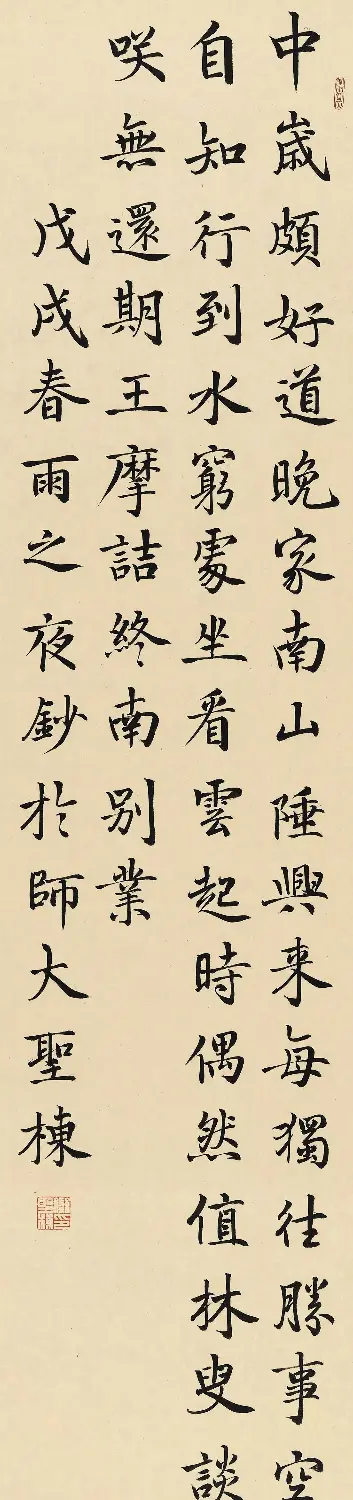 中歲頗好道晚家南山陲興来每獨往勝事空
自知行到水窮處坐看雲起時偶然值林叟談
笑無還期王摩詰終南别業
戊戌春雨之夜鈔於師大聖棟